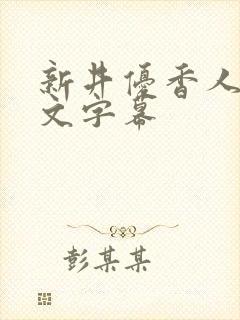 新井優香人
文字幕
彭某某